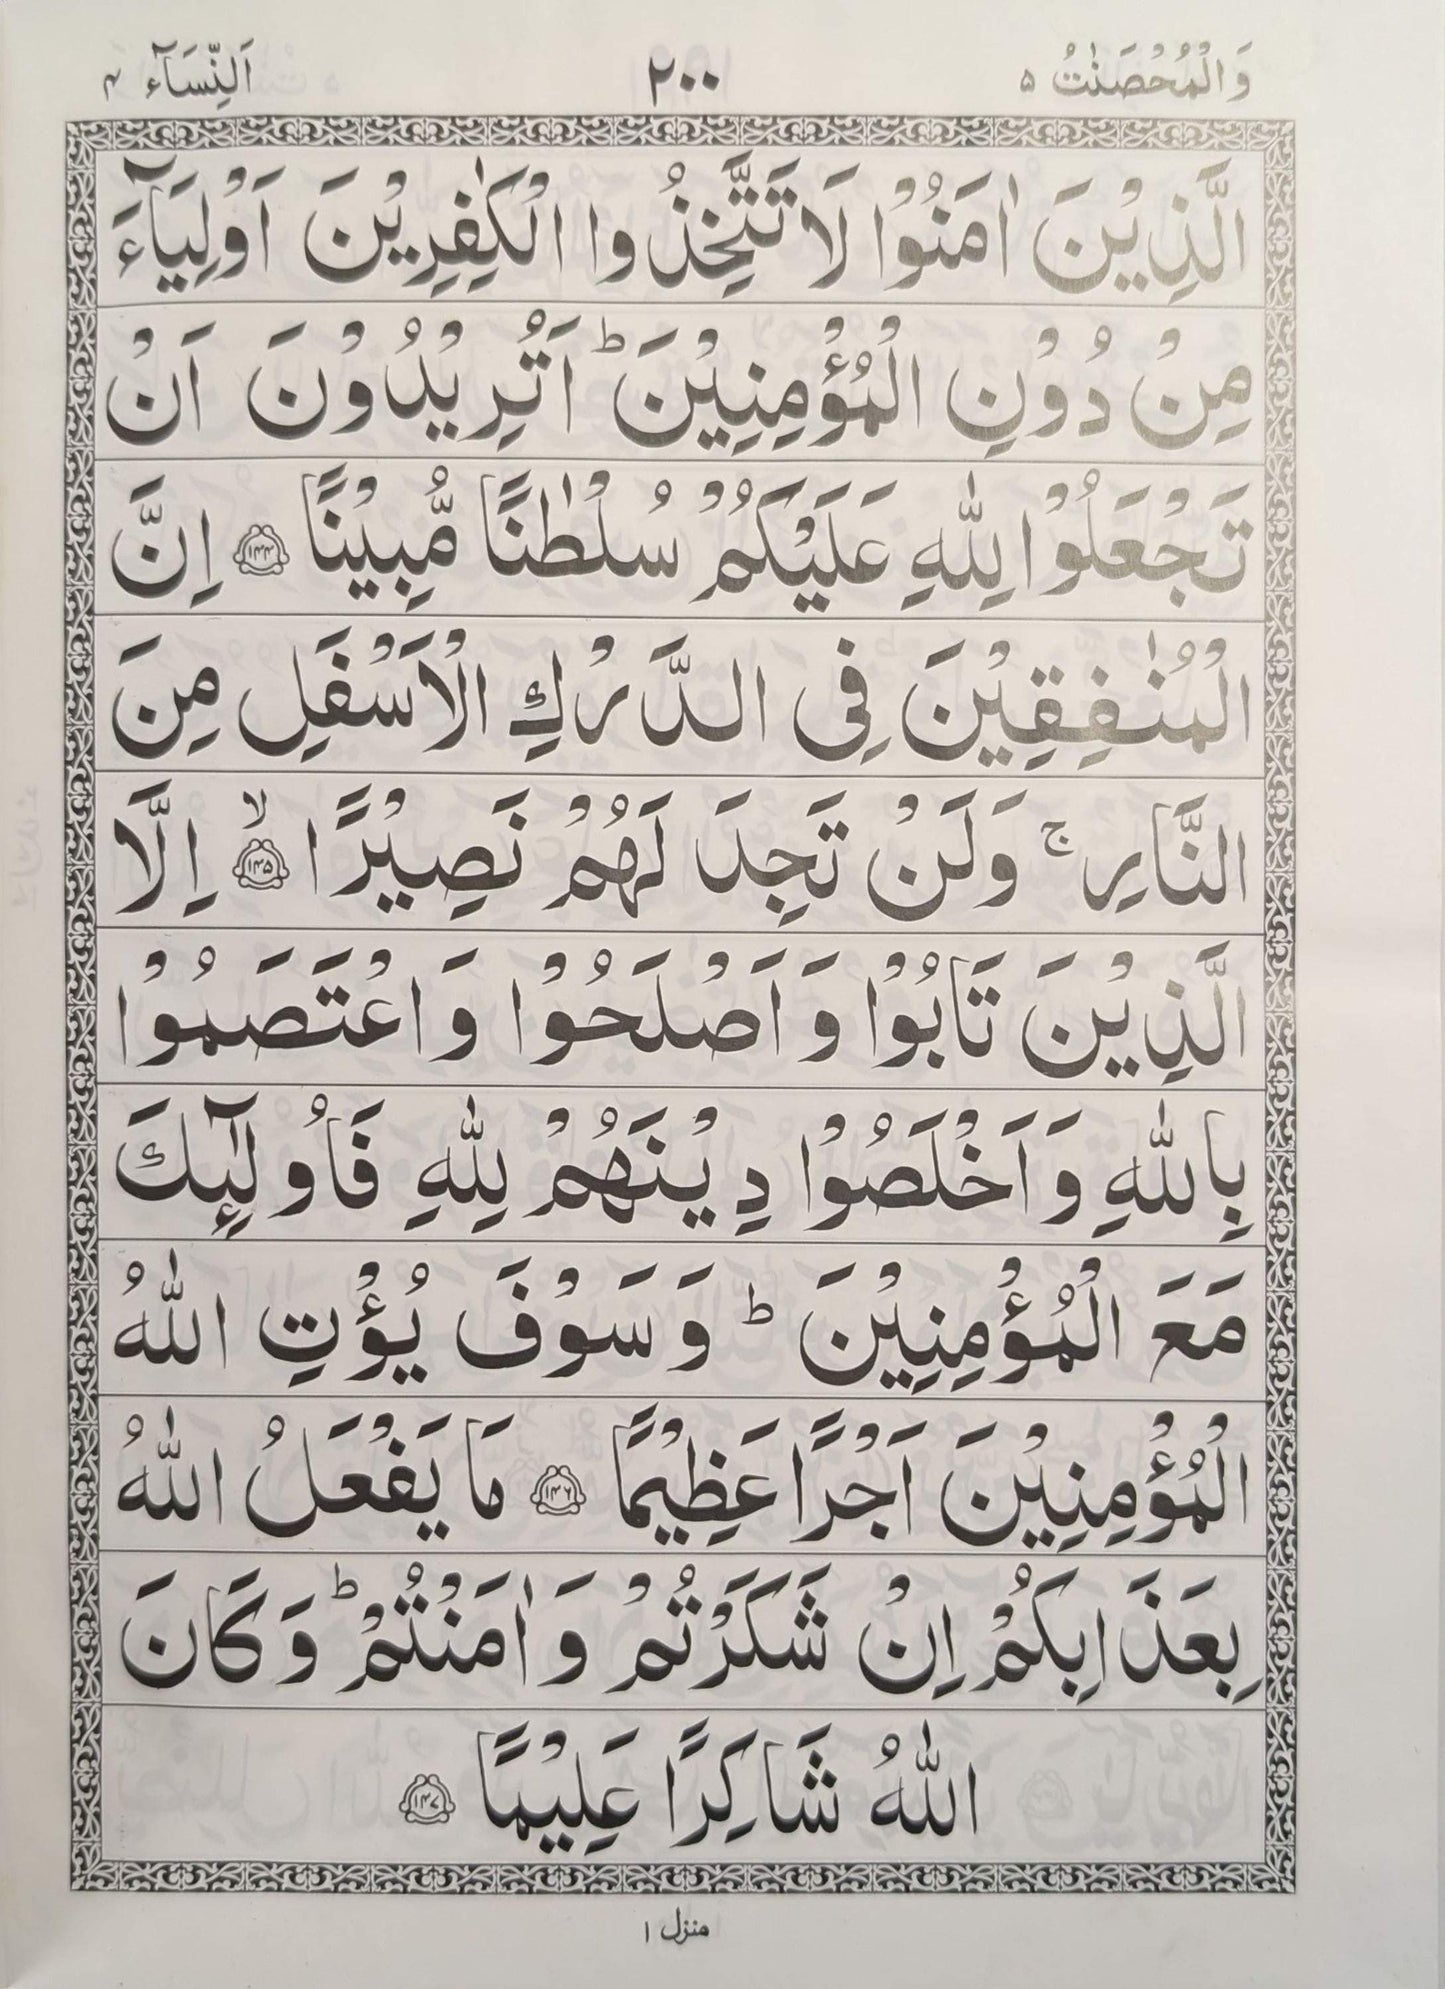 وَالْمُحْصَنٰتُ ۵
۲۰۰
اَلنِّسَآء ۴
الَّذِيْنَ اٰمَنُوْا لَا تَتَّخِذُوا الْكٰفِرِيْنَ اَوْلِيَآءَ
مِنْ دُوْنِ الْمُؤْمِنِيْنَ ؕ اَتُرِيْدُوْنَ اَنْ
تَجْعَلُوْا لِلّٰهِ عَلَيْكُمْ سُلْطٰنًا مُّبِيْنًا ﴿۱۴۴﴾ اِنَّ
الْمُنٰفِقِيْنَ فِى الدَّرْكِ الْاَسْفَلِ مِنَ
النَّارِ ۚ وَلَنْ تَجِدَ لَهُمْ نَصِيْرًا ﴿۱۴۵﴾ ۙ اِلَّا
الَّذِيْنَ تَابُوْا وَاَصْلَحُوْا وَاعْتَصَمُوْا
بِاللّٰهِ وَاَخْلَصُوْا دِيْنَهُمْ لِلّٰهِ فَاُولٰٓئِكَ
مَعَ الْمُؤْمِنِيْنَ ؕ وَسَوْفَ يُؤْتِ اللّٰهُ
الْمُؤْمِنِيْنَ اَجْرًا عَظِيْمًا ﴿۱۴۶﴾ مَا يَفْعَلُ اللّٰهُ
بِعَذَابِكُمْ اِنْ شَكَرْتُمْ وَاٰمَنْتُمْ ؕ وَكَانَ
اللّٰهُ شَاكِرًا عَلِيْمًا ﴿۱۴۷﴾
منزل ۱